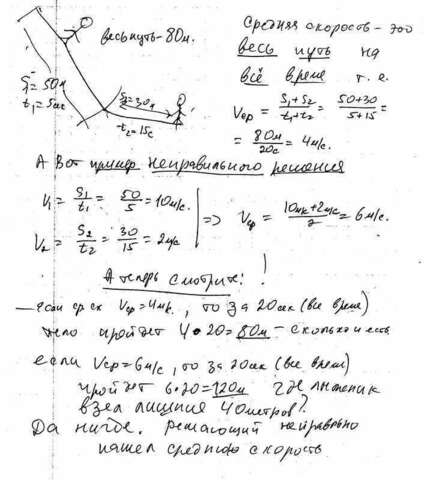 весь путь - 80м.
S₁ = 50м
t₁ = 5сек
S₂ = 30м
t₂ = 15с
Средняя скорость - это
весь путь на
всё время т. е.
Vср = (S₁ + S₂)/(t₁ + t₂) = (50 + 30)/(5 + 15) =
= 80м/20с = 4м/с.
А вот пример неправильного решения
V₁ = S₁/t₁ = 50/5 = 10м/с.
V₂ = S₂/t₂ = 30/15 = 2м/с
=> Vср = (10м/с + 2м/с)/2 = 6м/с.
А теперь смотрите!
— если ср ск Vср = 4м/с, то за 20сек (все время)
тело пройдет 4 • 20 = 80м - сколько и есть
если Vср = 6м/с, то за 20сек (все время)
пройдет 6 • 20 = 120м Где лыжник
взял лишния 40метров?
Да нигде. Решающий неправильно
нашел среднюю скорость